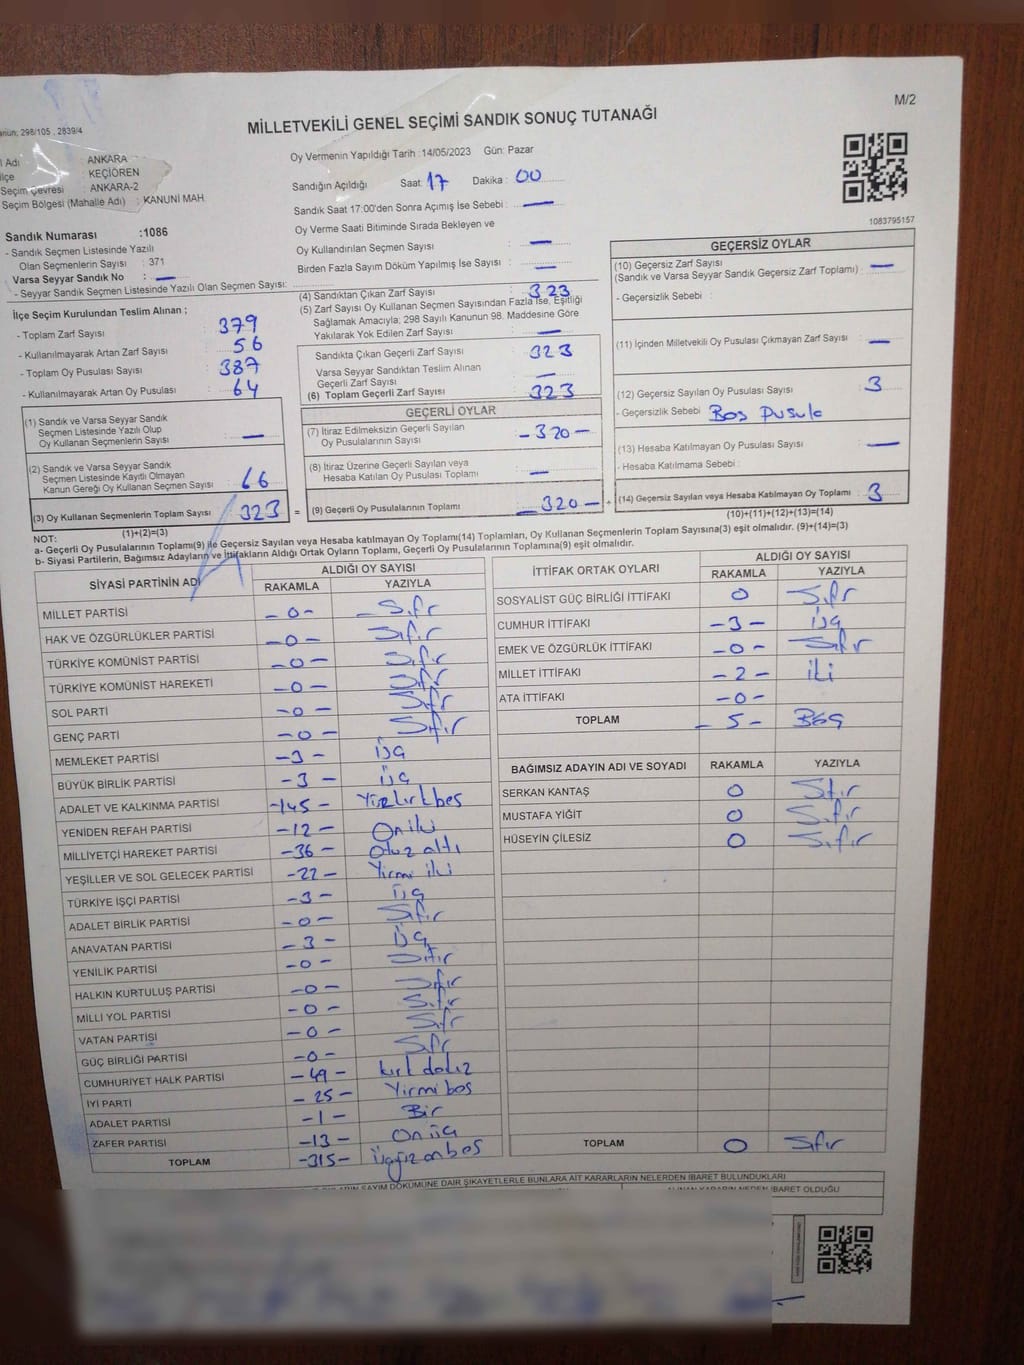 M/2
MİLLETVEKİLİ GENEL SEÇİMİ SANDIK SONUÇ TUTANAĞI
298/105 , 2839/4
Adı : ANKARA
İlçe : KEÇİÖREN
Seçim Çevresi : ANKARA-2
Seçim Bölgesi (Mahalle Adı) : KANUNİ MAH.
Sandık Numarası :1086
- Sandık Seçmen Listesinde Yazılı
Olan Seçmenlerin Sayısı : 371
Varsa Seyyar Sandık No : —
- Seyyar Sandık Seçmen Listesinde Yazılı Olan Seçmen Sayısı:
Oy Vermenin Yapıldığı Tarih :14/05/2023 Gün: Pazar
Sandığın Açıldığı Saat: 17 Dakika : 00
Sandık Saat 17:00'den Sonra Açılmış İse Sebebi : —
Oy Verme Saati Bitiminde Sırada Bekleyen ve
Oy Kullandırılan Seçmen Sayısı : —
Birden Fazla Sayım Döküm Yapılmış İse Sayısı : —
1083795157
İlçe Seçim Kurulundan Teslim Alınan ;
- Toplam Zarf Sayısı : 379
- Kullanılmayarak Artan Zarf Sayısı : 56
- Toplam Oy Pusulası Sayısı : 387
- Kullanılmayarak Artan Oy Pusulası : 64
(1) Sandık ve Varsa Seyyar Sandık
Seçmen Listesinde Yazılı Olup
Oy Kullanan Seçmenlerin Sayısı : —
(2) Sandık ve Varsa Seyyar Sandık
Seçmen Listesinde Kayıtlı Olmayan
Kanun Gereği Oy Kullanan Seçmen Sayısı :
(3) Oy Kullanan Seçmenlerin Toplam Sayısı : 323 =
(1)+(2)=(3)
(4) Sandıktan Çıkan Zarf Sayısı : 323
(5) Zarf Sayısı Oy Kullanan Seçmen Sayısından Fazla İse, Eşitliği
Sağlamak Amacıyla; 298 Sayılı Kanunun 98. Maddesine Göre
Yakılarak Yok Edilen Zarf Sayısı : —
Sandıkta Çıkan Geçerli Zarf Sayısı : 323
Varsa Seyyar Sandıktan Teslim Alınan
Geçerli Zarf Sayısı : —
(6) Toplam Geçerli Zarf Sayısı : 323
GEÇERLİ OYLAR
(7) İtiraz Edilmeksizin Geçerli Sayılan
Oy Pusulalarının Sayısı : -320-
(8) İtiraz Üzerine Geçerli Sayılan veya
Hesaba Katılan Oy Pusulası Toplamı : —
(9) Geçerli Oy Pusulalarının Toplamı : -320- +
GEÇERSİZ OYLAR
(10) Geçersiz Zarf Sayısı
(Sandık ve Varsa Seyyar Sandık Geçersiz Zarf Toplamı) : —
- Geçersizlik Sebebi :
(11) İçinden Milletvekili Oy Pusulası Çıkmayan Zarf Sayısı : —
(12) Geçersiz Sayılan Oy Pusulası Sayısı : 3
- Geçersizlik Sebebi : Boş Pusula
(13) Hesaba Katılmayan Oy Pusulası Sayısı : —
- Hesaba Katılmama Sebebi :
(14) Geçersiz Sayılan veya Hesaba Katılmayan Oy Toplamı : 3
(10)+(11)+(12)+(13)=(14)
NOT:
a- Geçerli Oy Pusulalarının Toplamı(9) ile Geçersiz Sayılan veya Hesaba Katılmayan Oy Toplamı(14) Toplamları, Oy Kullanan Seçmenlerin Toplam Sayısına(3) eşit olmalıdır. (9)+(14)=(3)
b- Siyasi Partilerin, Bağımsız Adayların ve İttifakların Aldığı Ortak Oyların Toplamı, Geçerli Oy Pusulalarının Toplamına(9) eşit olmalıdır.
SİYASİ PARTİNİN ADI ALDIĞI OY SAYISI
RAKAMLA YAZIYLA
MİLLET PARTİSİ -0- Sıfır
HAK VE ÖZGÜRLÜKLER PARTİSİ -0- Sıfır
TÜRKİYE KOMÜNİST PARTİSİ -0- Sıfır
TÜRKİYE KOMÜNİST HAREKETİ -0- Sıfır
SOL PARTİ -0- Sıfır
GENÇ PARTİ -0- Sıfır
MEMLEKET PARTİSİ -3- Üç
BÜYÜK BİRLİK PARTİSİ -3- üç
ADALET VE KALKINMA PARTİSİ -145- Yüzkırkbeş
YENİDEN REFAH PARTİSİ -12- Oniki
MİLLİYETÇİ HAREKET PARTİSİ -36- Otuz altı
YEŞİLLER VE SOL GELECEK PARTİSİ -22- Yirmi iki
TÜRKİYE İŞÇİ PARTİSİ -3- Üç
ADALET BİRLİK PARTİSİ -0- Sıfır
ANAVATAN PARTİSİ -3- Üç
YENİLİK PARTİSİ -0- Sıfır
HALKIN KURTULUŞ PARTİSİ -0- Sıfır
MİLLİ YOL PARTİSİ -0- Sıfır
VATAN PARTİSİ -0- Sıfır
GÜÇ BİRLİĞİ PARTİSİ -0- Sıfır
CUMHURİYET HALK PARTİSİ -49- Kırk dokuz
İYİ PARTİ -25- Yirmi beş
ADALET PARTİSİ -1- Bir
ZAFER PARTİSİ -13- Onüç
TOPLAM -315- Üçyüzonbeş
İTTİFAK ORTAK OYLARI ALDIĞI OY SAYISI
RAKAMLA YAZIYLA
SOSYALİST GÜÇ BİRLİĞİ İTTİFAKI 0 Sıfır
CUMHUR İTTİFAKI -3- üç
EMEK VE ÖZGÜRLÜK İTTİFAKI -0- Sıfır
MİLLET İTTİFAKI -2- iki
ATA İTTİFAKI -0-
TOPLAM -5- Beş
BAĞIMSIZ ADAYIN ADI VE SOYADI RAKAMLA YAZIYLA
SERKAN KANTAŞ 0 Sıfır
MUSTAFA YİĞİT 0 Sıfır
HÜSEYİN ÇİLESİZ 0 Sıfır
TOPLAM 0 Sıfır
SAYIM DÖKÜMÜNE DAİR ŞİKAYETLERLE BUNLARA AİT KARARLARIN NELERDEN İBARET BULUNDUKLARI
ALINAN KARARIN NEDEN İBARET OLDUĞU